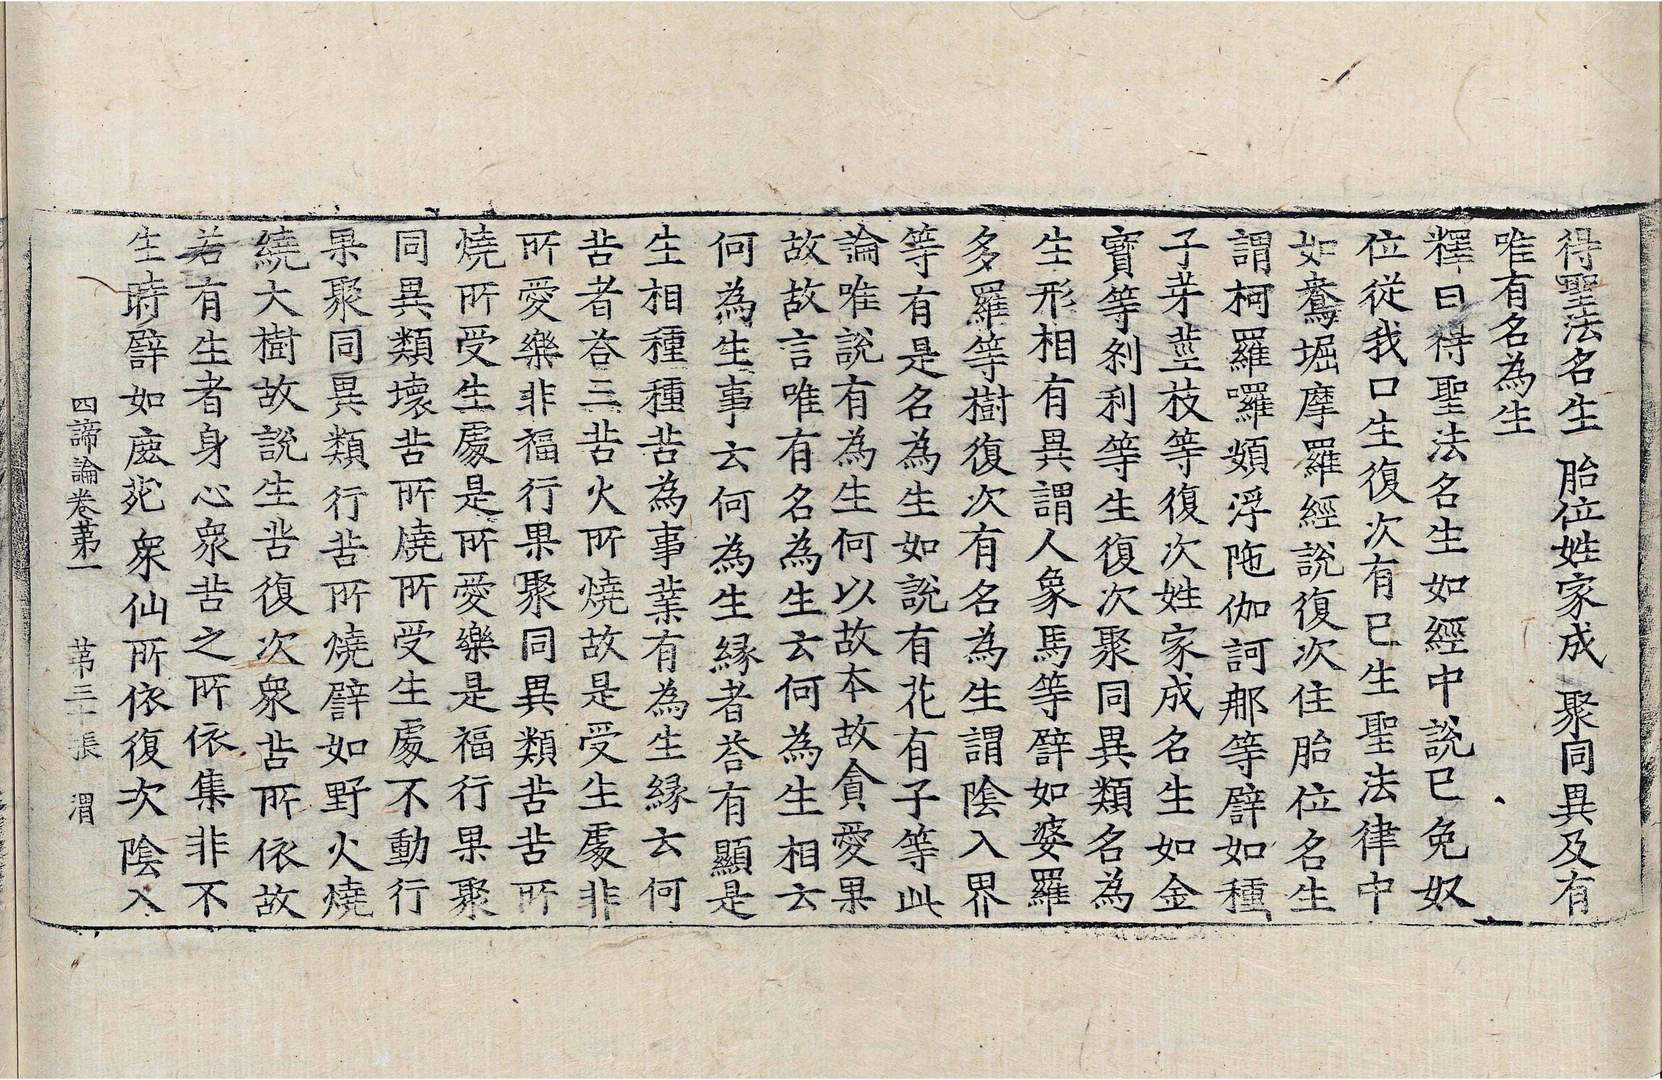 得聖法名生 胎位姓家成 聚同異及有
唯有名為生
釋曰得聖法名生如經中說已免奴
位從我口生復次有已生聖法律中
如鴦堀摩羅經說復次住胎位名生
謂柯羅囉頞浮陁伽訶那等譬如種
子芽莖枝等復次姓家成名生如金
寶等刹利等生復次聚同異類名為
生形相有異謂人象馬等譬如婆羅
多羅等樹復次有名為生謂陰入界
等有是名為生如說有花有子等此
論唯說有為生何以故本故貪愛果
故故言唯有名為生云何為生相云
何為生事云何為生緣者荅有顯是
生相種種苦為事業有為生緣云何
苦者荅三苦火所燒故是受生處非
所愛樂非福行果聚同異類苦苦所
燒所受生處是所愛樂是福行果聚
同異類壞苦所燒所受生處不動行
果聚同異類行苦所燒譬如野火燒
繞大樹故說生苦復次衆苦所依故
若有生者身心衆苦之所依集非不
生時譬如鹿苑衆仙所依復次陰入
四諦論卷第一 第三十張 渭